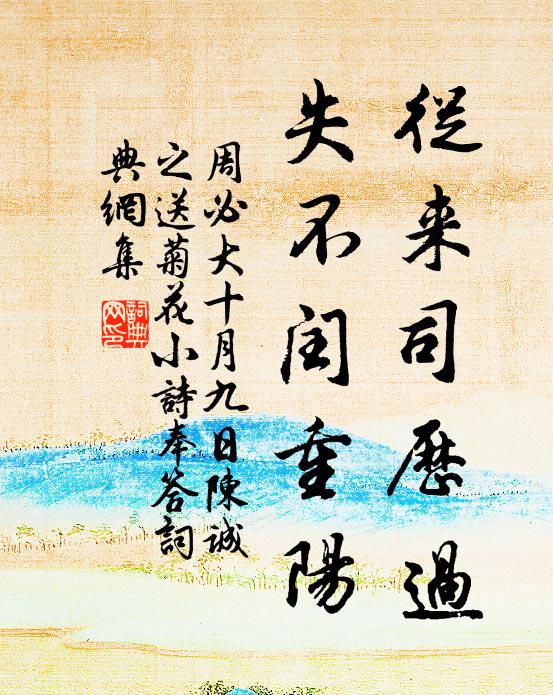 從来司歷過
失不閏重陽
周必大十月九日陳誠
之送菊花小詩奉答詞
典網集
詞典
网印